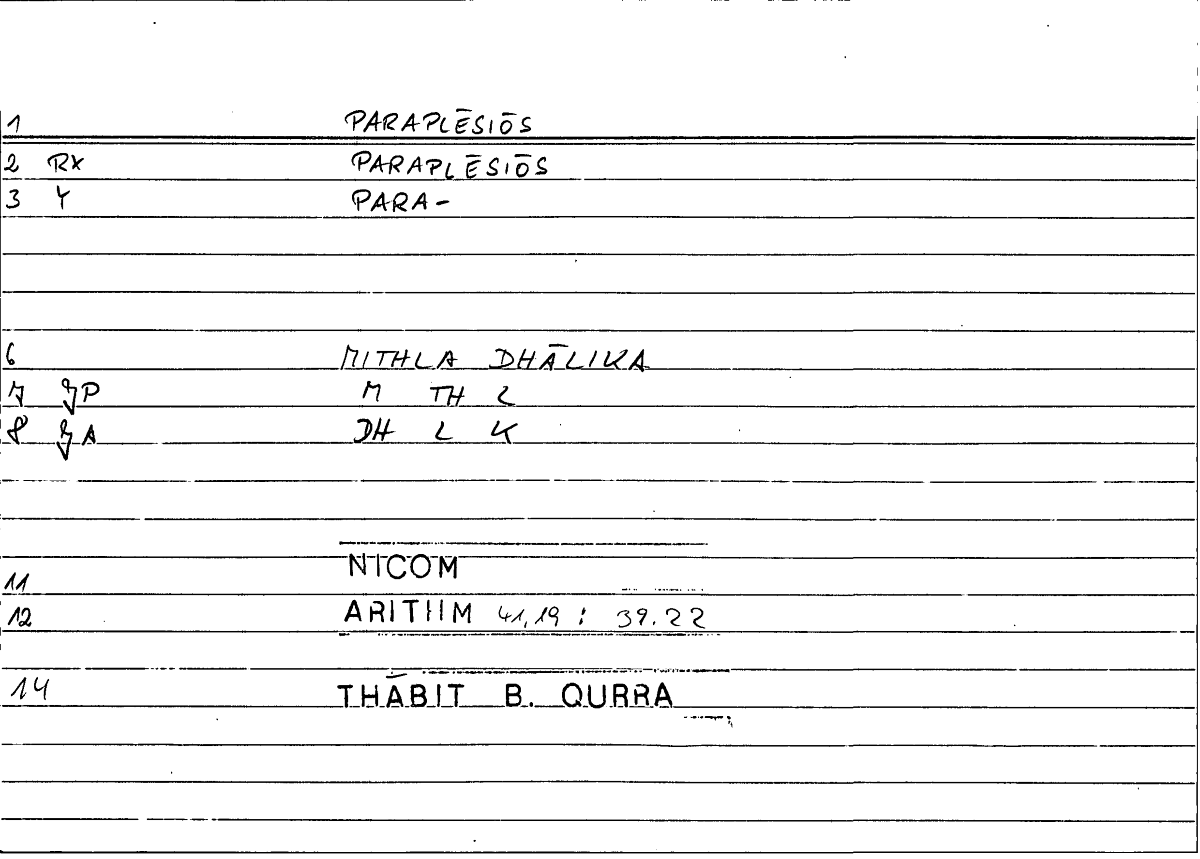 1 PARAPLĒSIŌS
2 RX PARAPLĒSIŌS
3 Y PARA-
6 MITHLA DHĀLIKA
7 P M TH L
8 A DH L K
11 NICOM
12 ARITHM 41,19 : 39.22
14 THĀBIT B. QURRA